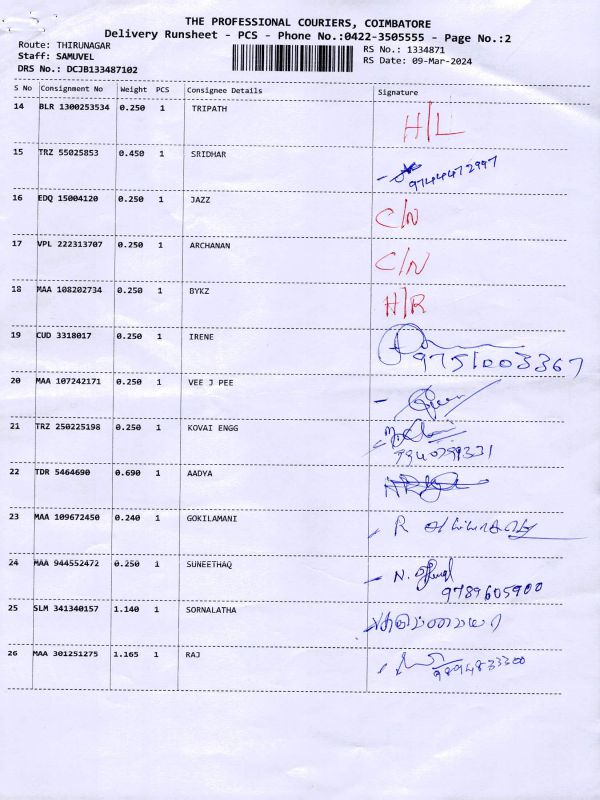 THE PROFESSIONAL COURIERS, COIMBATORE
Delivery Runsheet - PCS - Phone No.:0422-3505555 - Page No.:2
Route: THIRUNAGAR RS No.: 1334871
Staff: SAMUVEL RS Date: 09-Mar-2024
DRS No.: DCJB133487102
S No Consignment No Weight PCS Consignee Details Signature
14 BLR 1300253534 0.250 1 TRIPATH H/L
15 TRZ 55025853 0.450 1 SRIDHAR
9744472997
16 EDQ 15004120 0.250 1 JAZZ C/N
17 VPL 222313707 0.250 1 ARCHANAN C/N
18 MAA 108202734 0.250 1 BYKZ H/R
19 CUD 3318017 0.250 1 IRENE
9751003367
20 MAA 107242171 0.250 1 VEE J PEE
21 TRZ 250225198 0.250 1 KOVAI ENGG
22 TDR 5464690 0.690 1 AADYA
23 MAA 109672450 0.240 1 GOKILAMANI R
24 MAA 944552472 0.250 1 SUNEETHAQ N.
9789605900
25 SLM 341340157 1.140 1 SORNALATHA
26 MAA 301251275 1.165 1 RAJ
9894833300